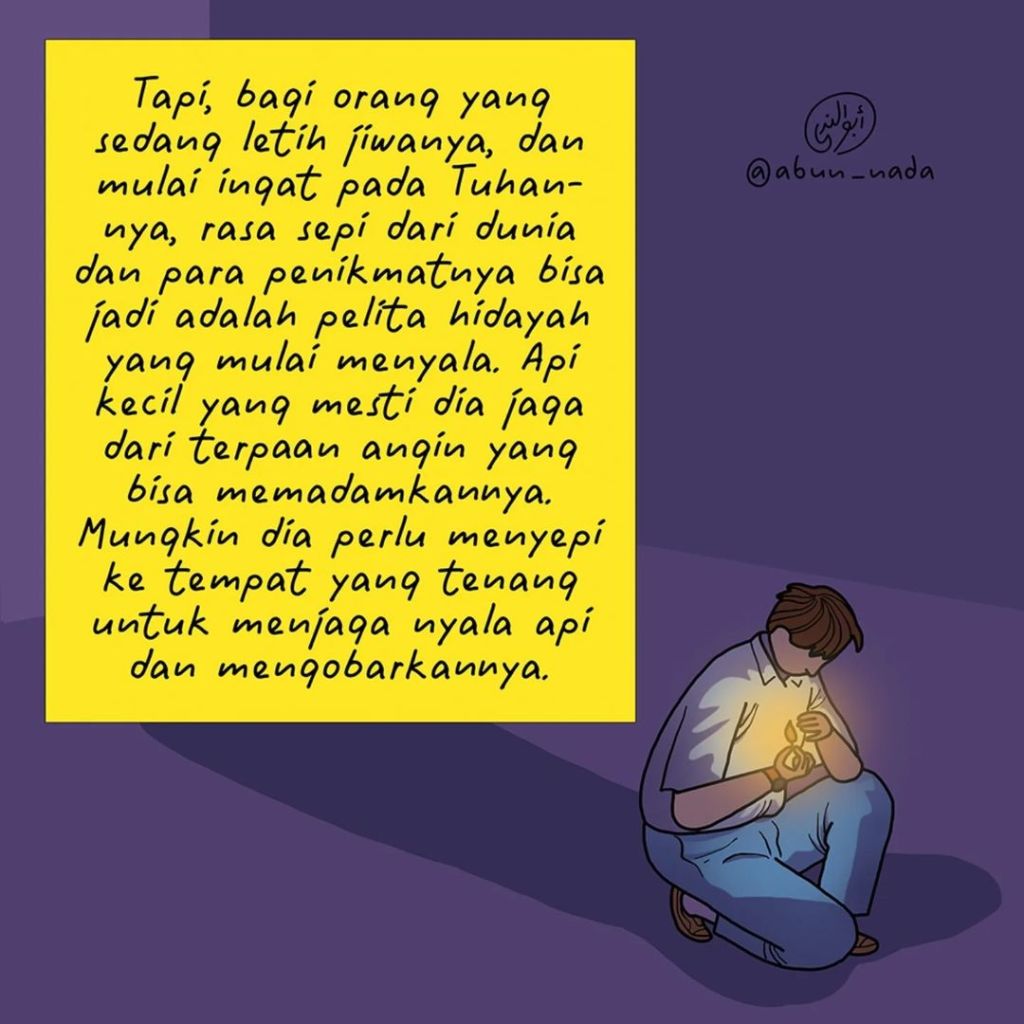 Tapi, bagi orang yang
sedang letih jiwanya, dan
mulai ingat pada Tuhan-
nya, rasa sepi dari dunia
dan para penikmatnya bisa
jadi adalah pelita hidayah
yang mulai menyala. Api
kecil yang mesti dia jaga
dari terpaan angin yang
bisa memadamkannya.
Mungkin dia perlu menyepi
ke tempat yang tenang
untuk menjaga nyala api
dan mengobarkannya.
@abun_nada